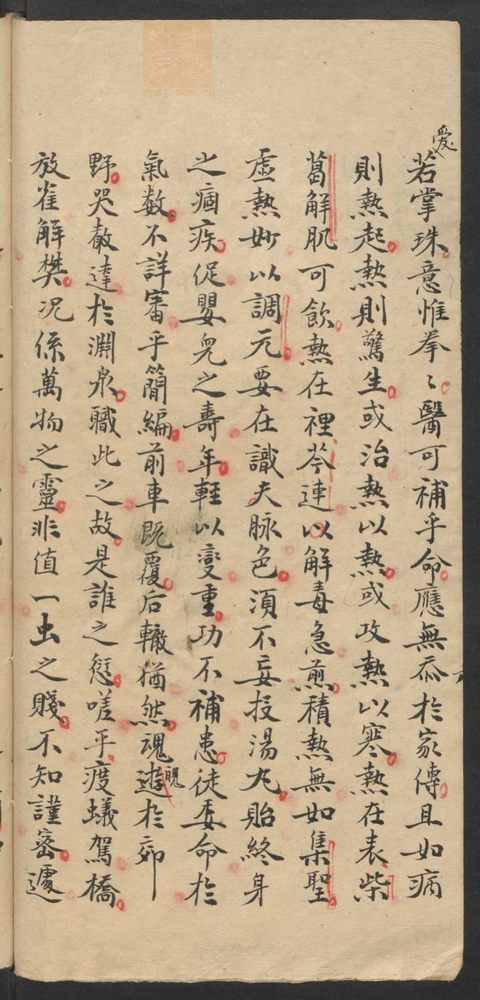 愛若掌珠意惟拳〻醫可補乎命應無忝於家傳且如病
則熱起熱則驚生或治熱以熱或攻熱以寒熱在表柴
葛解肌可飲熱在裡芩連以解毒急煎積熱無如集聖
虛熱妙以調元要在識夫脉色須不妄投湯丸貽終身
之痼疾促嬰兒之壽年輕以變重功不補患徒委命於
氣数不詳審乎簡編前車既覆后轍猶然魂遊於郊
野哭敵達於淵泉職此之故是誰之愆嗟乎渡蟻駕橋
放雀解樊况係萬物之靈非值一虫之賤不知謹密遽